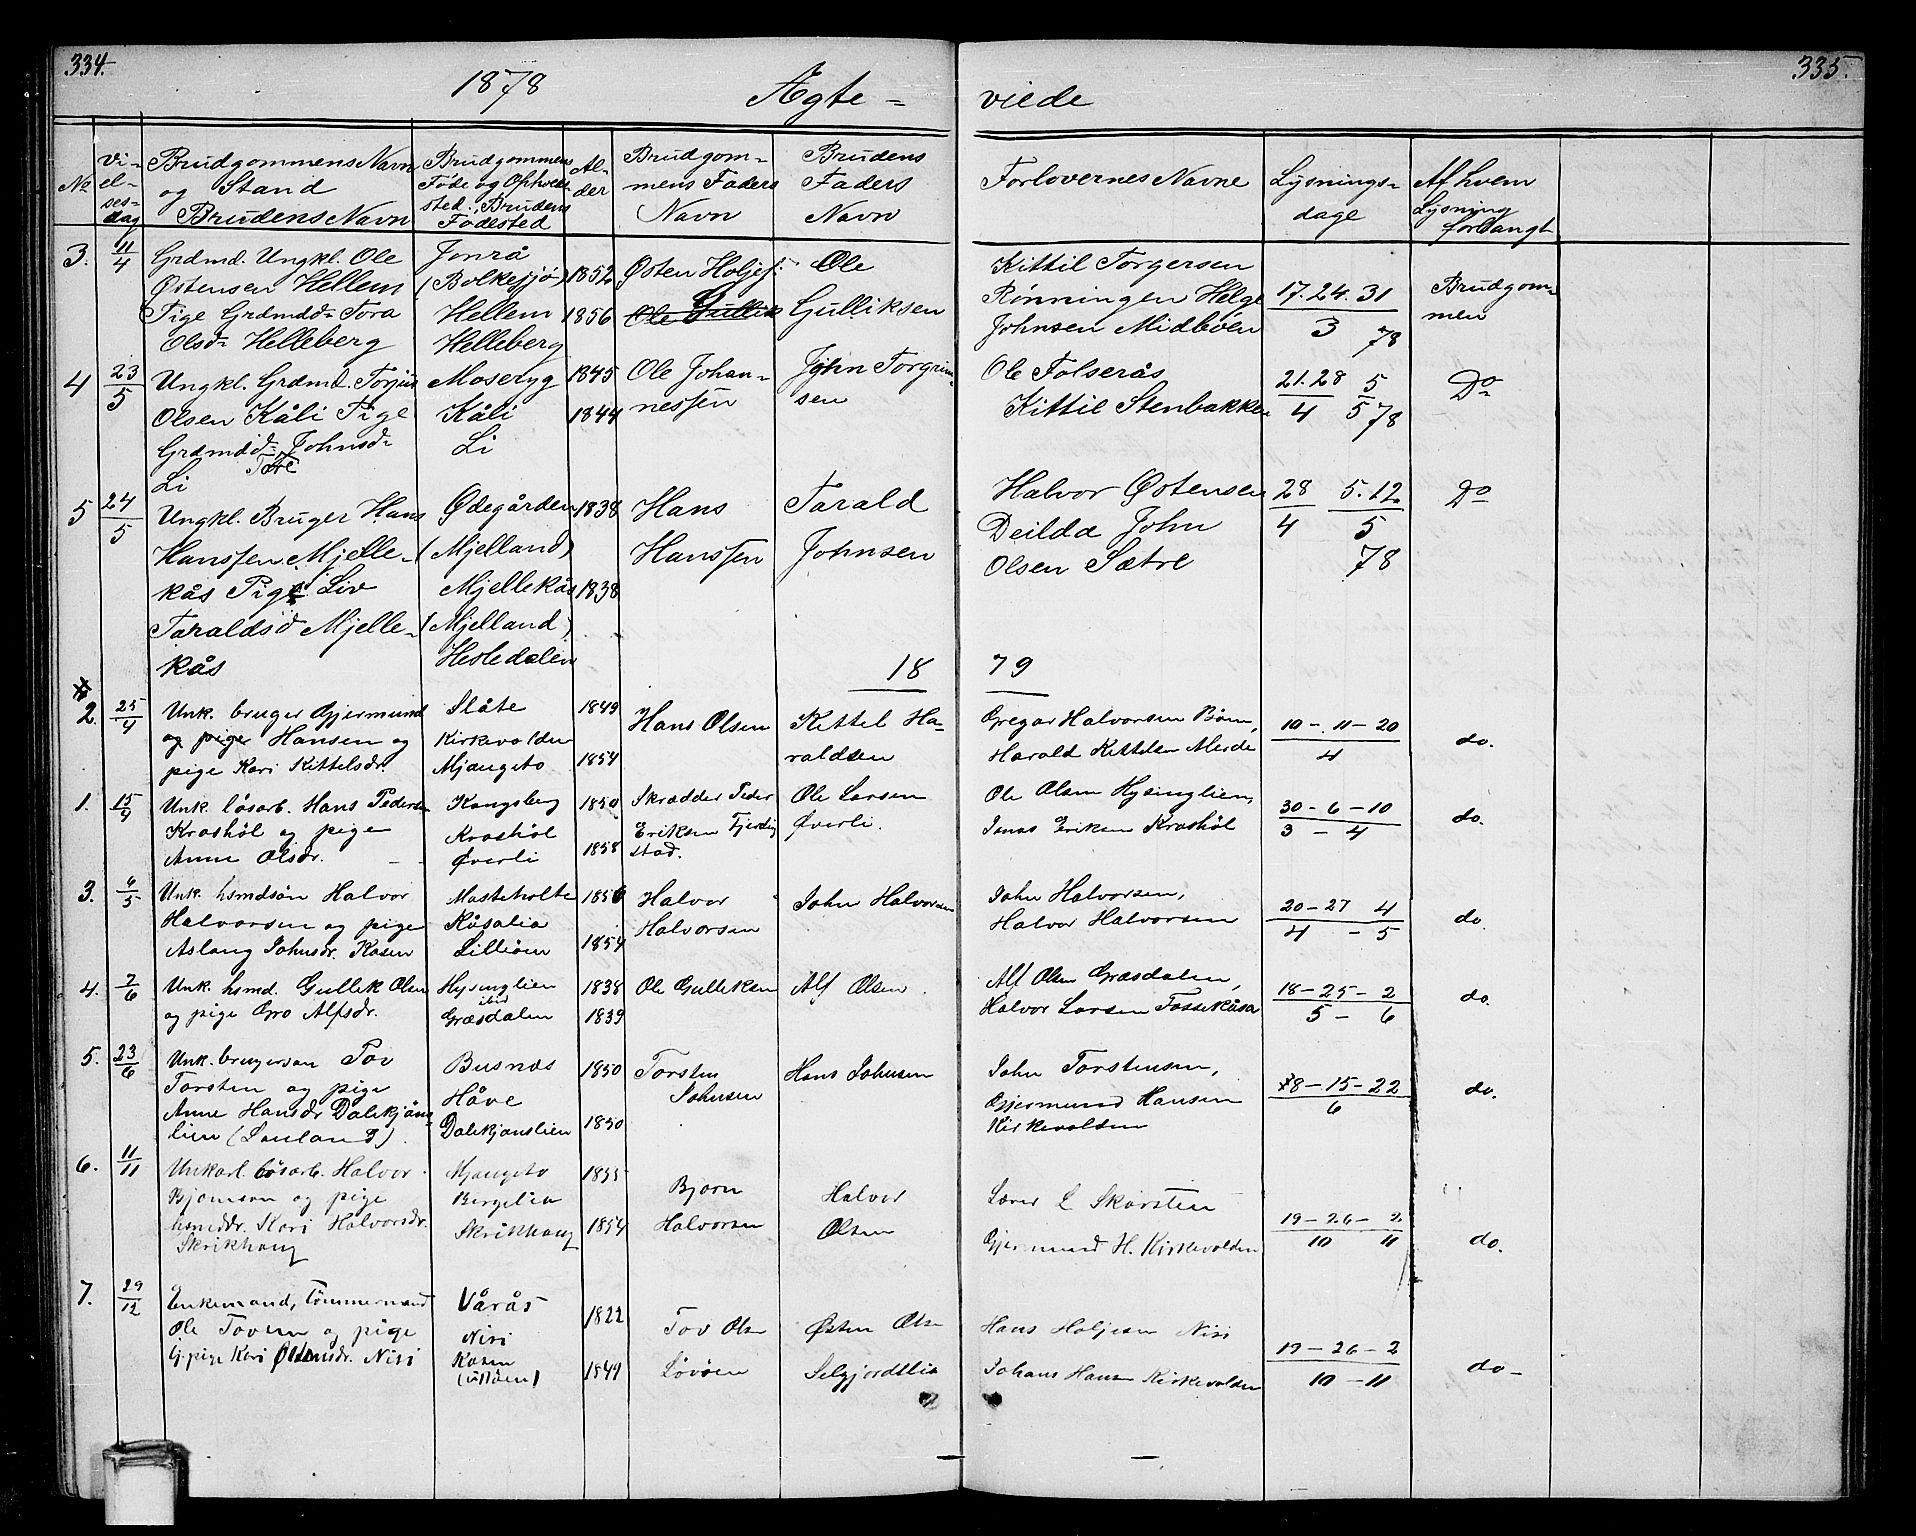 334.
335.
1878
Ægte = viede
No
Vi-
el-
ses-
dag
Brudgommens Navn
og Stand
Brudens Navn
Brudgommens
Føde og Opholds
sted. Brudens
Fødested
Al-
der
Brudgom-
mens Faders
Navn
Brudens
Faders
Navn
Forlovernes Navne
Lysnings-
dage
Af hvem
Lysning
forlangt
3. 11/4
Grdmd. Ungkl. Ole
Østensen Hellem
Pige Grdmdd= Tora
Olsd= Helleberg
Jonrå
(Bolkesjø)
Hellem
Helleberg
1852
1856
Østen Holjes:
Ole Gullik
Ole
Gulliksen
Kittil Torgersen
Rønningen Helge
Johnsen Midbøen
17. 24. 31
3 78
Brudgom=
men
4 23/5
Ungkl. Grdmd. Torjus
Olsen Kåli Pige
Grdmdd= Johnsd=
Tore
Li
Moseryg
Kåli
Li
1845
1844
Ole Johan-
nessen
John Torgrim-
sen
Ole Folserås
Kittil Stenbakken
21. 28 5
4 5 78
Do
5 24/5
Ungkl. Bruger Hans
Hanssen Mjelle-
kås Pige Liv
Taraldsd Mjelle-
kås
Ødegården
(Mjelland)
Mjellekås
(Mjelland)
Hesledalen
1838
1838
Hans
Hanssen
Tarald
Johnsen
Halvor Østensen
Deilda John
Olsen Sætre
28 5. 12
4 5
78
Do
18 79
2. 25/4
Unk. bruger Gjermund
og pige Hansen og
pige Kari Kittelsdr.
Slåte
Kirkevolden
Mjaugeto
1849
1854
Hans Olsen
Kittel Ha-
raldsen
Gregar Halvorsen Bøen,
Harald Kittelsen Meide
10 - 11 - 20
4
do.
1. 15/4
Unk. løsarb. Hans Pedersen
Kroshøl og pige
Anne Olsdr.
Kongsberg
Kroshøl
Øverli
1850
1858
Skrædder Peder
Eriksen Fjerdig
stad.
Ole Larsen
Øverli.
Ole Olsen Hysinglien,
Jonas Eriksen Kroshøl
30 - 6 - 10
3 - 4
do.
3. 6/5
Unk. hsmdsøn Halvor
Halvorsen og pige
Aslaug Johnsdr. Kåsen
Masteholte
Råsalia
Lilliøen
1856
1854
Halvor
Halvorsen
John Halvorsen
John Halvorsen,
Halvor Halvorsen
20 - 27 4
4 - 5
do.
4. 7/6
Unk. hsmd. Gullik Olsen
og pige Gro Alfsdr.
Hysinglien
ibid
Græsdalen
1838
1839
Ole Gulleksen
Alf Olsen
Alf Olsen Græsdalen,
Halvor Larsen Fossekåsa
18 - 25 - 2
5 - 6
do.
5. 23/6
Unk. brugersøn Tov
Torsten og pige
Anne Hansdr Dalekjøns-
lien (Sauland).
Busnæs
Håve
Dalekjønslien
1850
1850
Torsten
Johnsen
Hans Johnsen
John Torstensen,
Gjermund Hansen
Kirkevolden
8 - 15 - 22
6
do.
6. 11/11
Unkarl løsarb. Halvor
Bjørnson og pige
hsmddr. Kari Halvorsdr.
Skrikhaug
Mjaugeto
Bergelia
Skrikhaug
1855
1854
Bjørn
Halvorsen
Halvor
Olsen
Lærer L Skårstin
Gjermund H. Kirkevolden
19 - 26 - 2
10 11
do.
7. 29/12
Enkemand, Tømmermand
Ole Tovsen og pige
Gpige Kari Østensdr. Nisi
Vårås
Nisi
Kåsen
1822
1849
Tov Olsen
Løvåen
Østen Olsen
Selgjordslia
Hans Holjesen Nisi
Johans Hansen Kirkevolden
19 - 26 - 2
10 - 11
do -